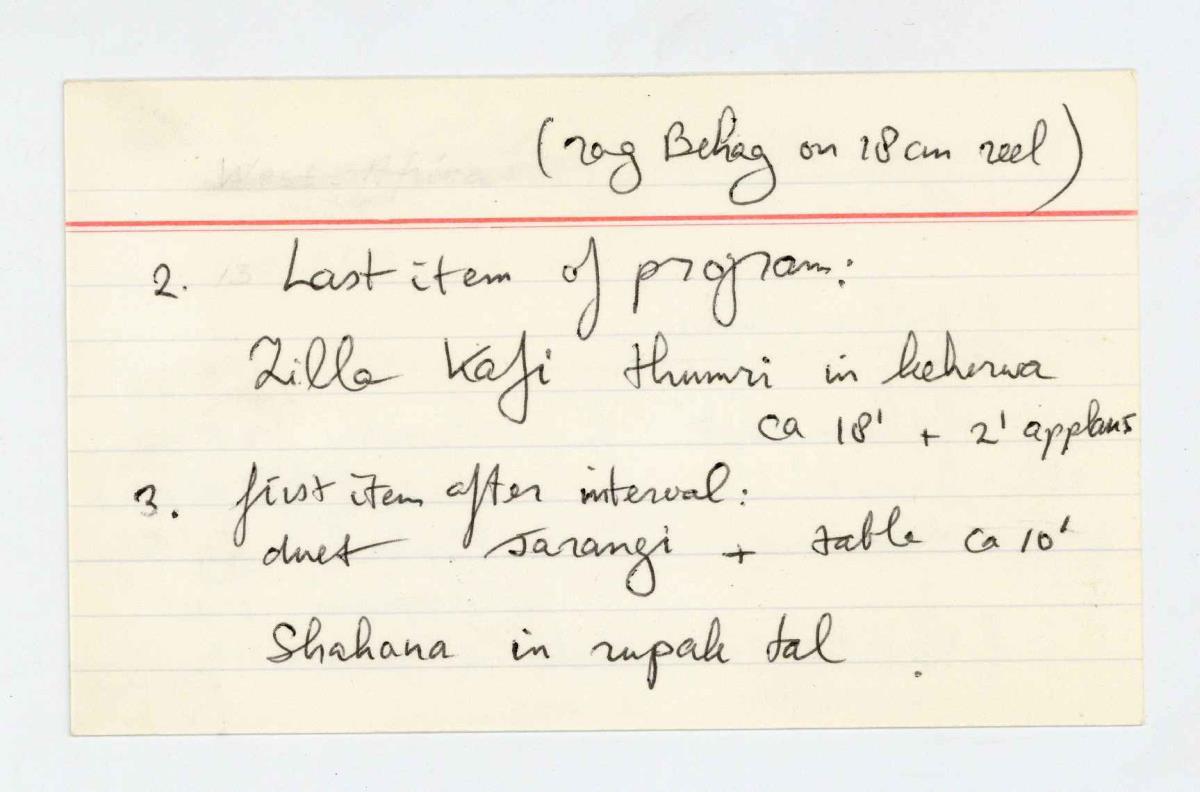 (rag Behag on 18 cm reel)
2. Last item of program:
Zilla Kafi thumri in keherwa
ca 18' + 2' applaus
3. first item after interval:
duet sarangi + tabla ca 10'
Shahana in rupak tal